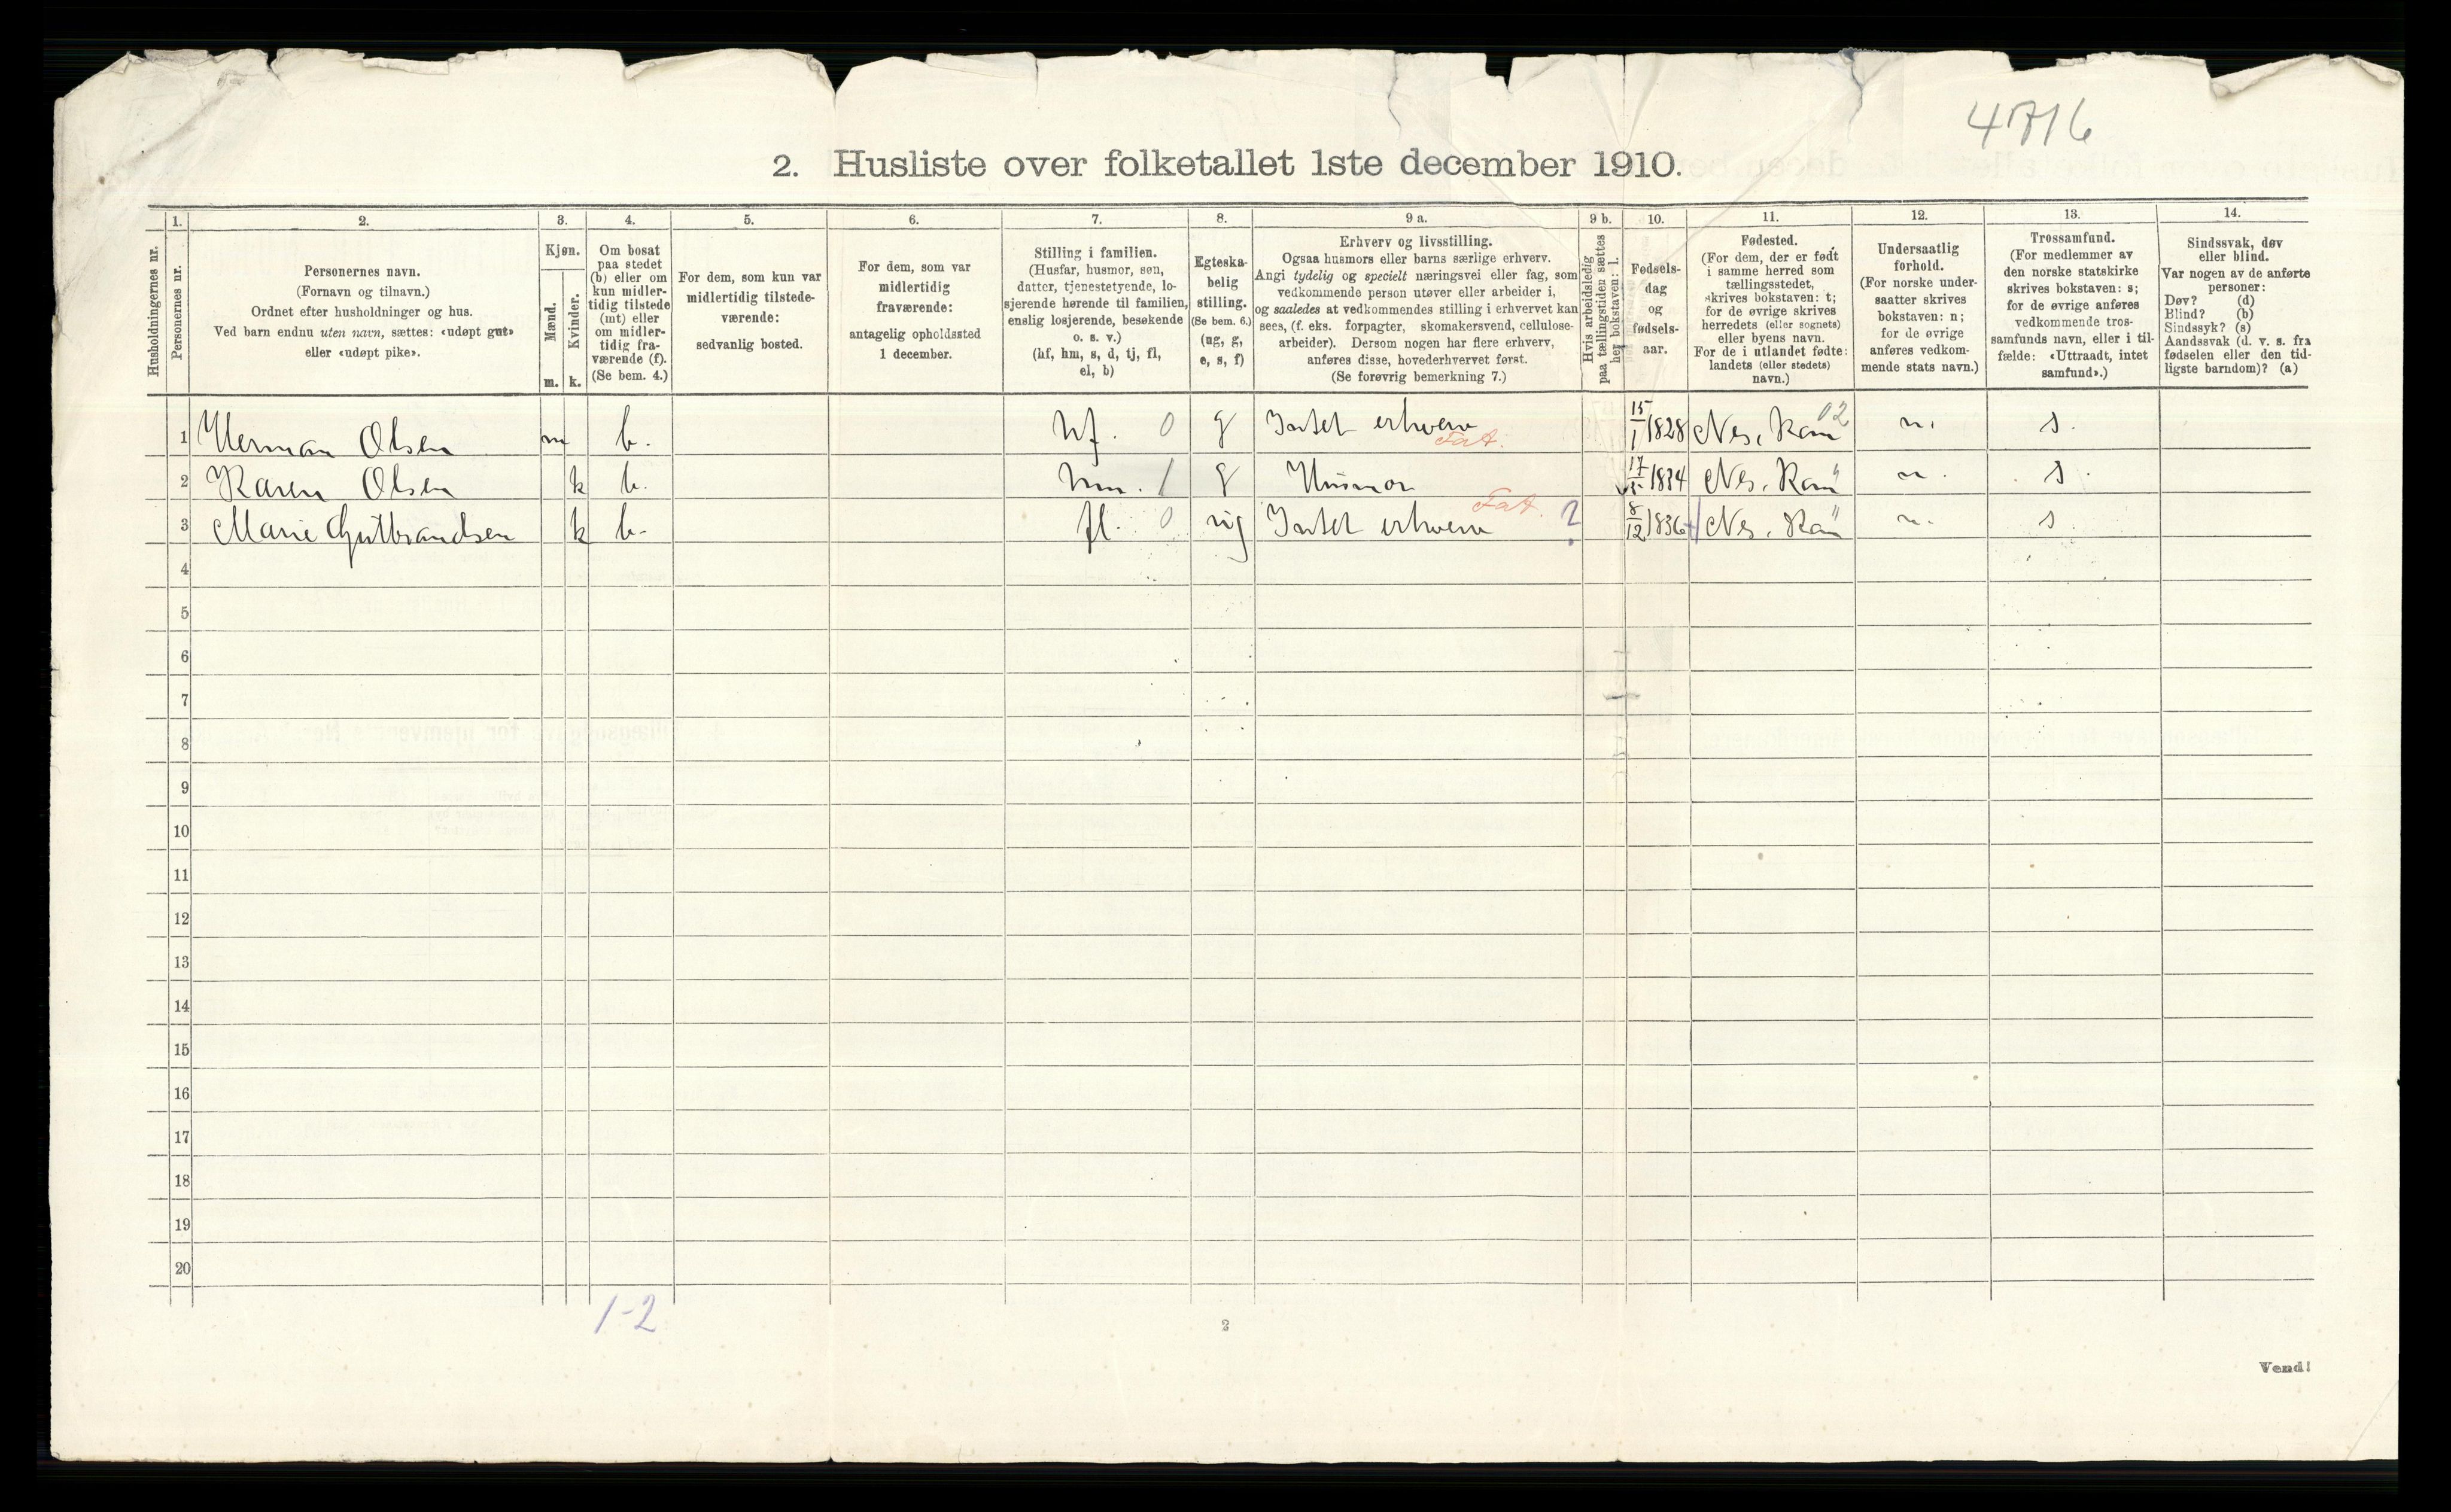 4716
2. Husliste over folketallet 1ste december 1910.
Husholdningernes nr.
1.
Personernes nr.
2.
Personernes navn.
(Fornavn og tilnavn.)
Ordnet efter husholdninger og hus.
Ved barn endnu uten navn, sættes: «udøpt gut»
eller «udøpt pike».
3.
Kjøn.
Mænd.
m.
Kvinder.
k.
4.
Om bosat
paa stedet
(b) eller om
kun midler-
tidig tilstede
(mt) eller
om midler-
tidig fra-
værende (f).
(Se bem. 4.)
5.
For dem, som kun var
midlertidig tilstede-
værende:
sedvanlig bosted.
6.
For dem, som var
midlertidig
fraværende:
antagelig opholdssted
1 december.
7.
Stilling i familien.
(Husfar, husmor, søn,
datter, tjenestetyende, lo-
sjerende hørende til familien,
enslig losjerende, besøkende
o. s. v.)
(hf, hm, s, d, tj, fl,
el, b)
8.
Egteska-
belig
stilling.
(Se bem. 6.)
(ug, g,
e, s, f)
9 a.
Erhverv og livsstilling.
Ogsaa husmors eller barns særlige erhverv.
Angi tydelig og specielt næringsvei eller fag, som
vedkommende person utøver eller arbeider i,
og saaledes at vedkommendes stilling i erhvervet kan
sees, (f. eks. forpagter, skomakersvend, cellulose-
arbeider). Dersom nogen har flere erhverv,
anføres disse, hovederhvervet først.
(Se forøvrig bemerkning 7.)
9 b.
Hvis arbeidsledig
paa tællingstiden sættes
her bokstaven: l.
10.
Fødsels-
dag
og
fødsels-
aar.
11.
Fødested.
(For dem, der er født
i samme herred som
tællingsstedet,
skrives bokstaven: t;
for de øvrige skrives
herredets (eller sognets)
eller byens navn.
For de i utlandet fødte:
landets (eller stedets)
navn.)
12.
Undersaatlig
forhold.
(For norske under-
saatter skrives
bokstaven: n;
for de øvrige
anføres vedkom-
mende stats navn.)
13.
Trossamfund.
(For medlemmer av
den norske statskirke
skrives bokstaven: s;
for de øvrige anføres
vedkommende tros-
samfunds navn, eller i til-
fælde: «Uttraadt, intet
samfund».)
14.
Sindssvak, døv
eller blind.
Var nogen av de anførte
personer:
Døv? (d)
Blind? (b)
Sindssyk? (s)
Aandssvak (d. v. s. fra
fødselen eller den tid-
ligste barndom)? (a)
1 Herman Olsen m b. hf. 0 g Intet erhverv Fat. 15/1 1828 Nes, Rom 02 n. s.
2 Karen Olsen k b. hm. 1 g Husmor 17/5 1834 Nes. Rom " n. s.
3 Marie Gutbrandsen k b. fl. 0 ug Intet erhverv Fat. ? 8/12 1836 Nes. Ro " n. s
4
5
6
7
8
9
10
11
12
13
14
15
16
17
18
19
20
1-2
2
Vend!